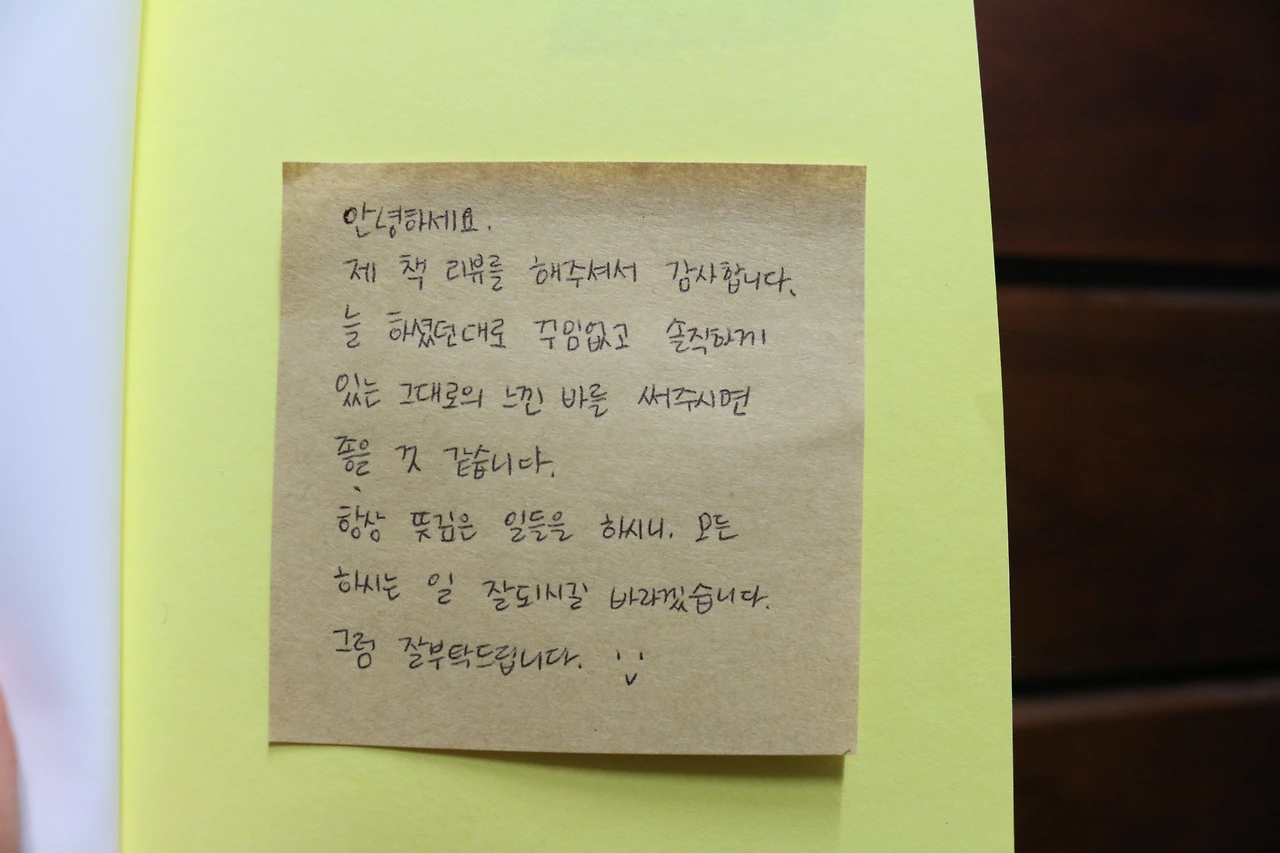 안녕하세요.
제 책 리뷰를 해주셔서 감사합니다.
늘 하셨던대로 꾸밈없고 솔직하게
있는 그대로의 느낀 바를 써주시면
좋을 것 같습니다.
항상 뜻깊은 일들을 하시니, 모든
하시는 일 잘되시길 바라겠습니다.
그럼 잘부탁드립니다.